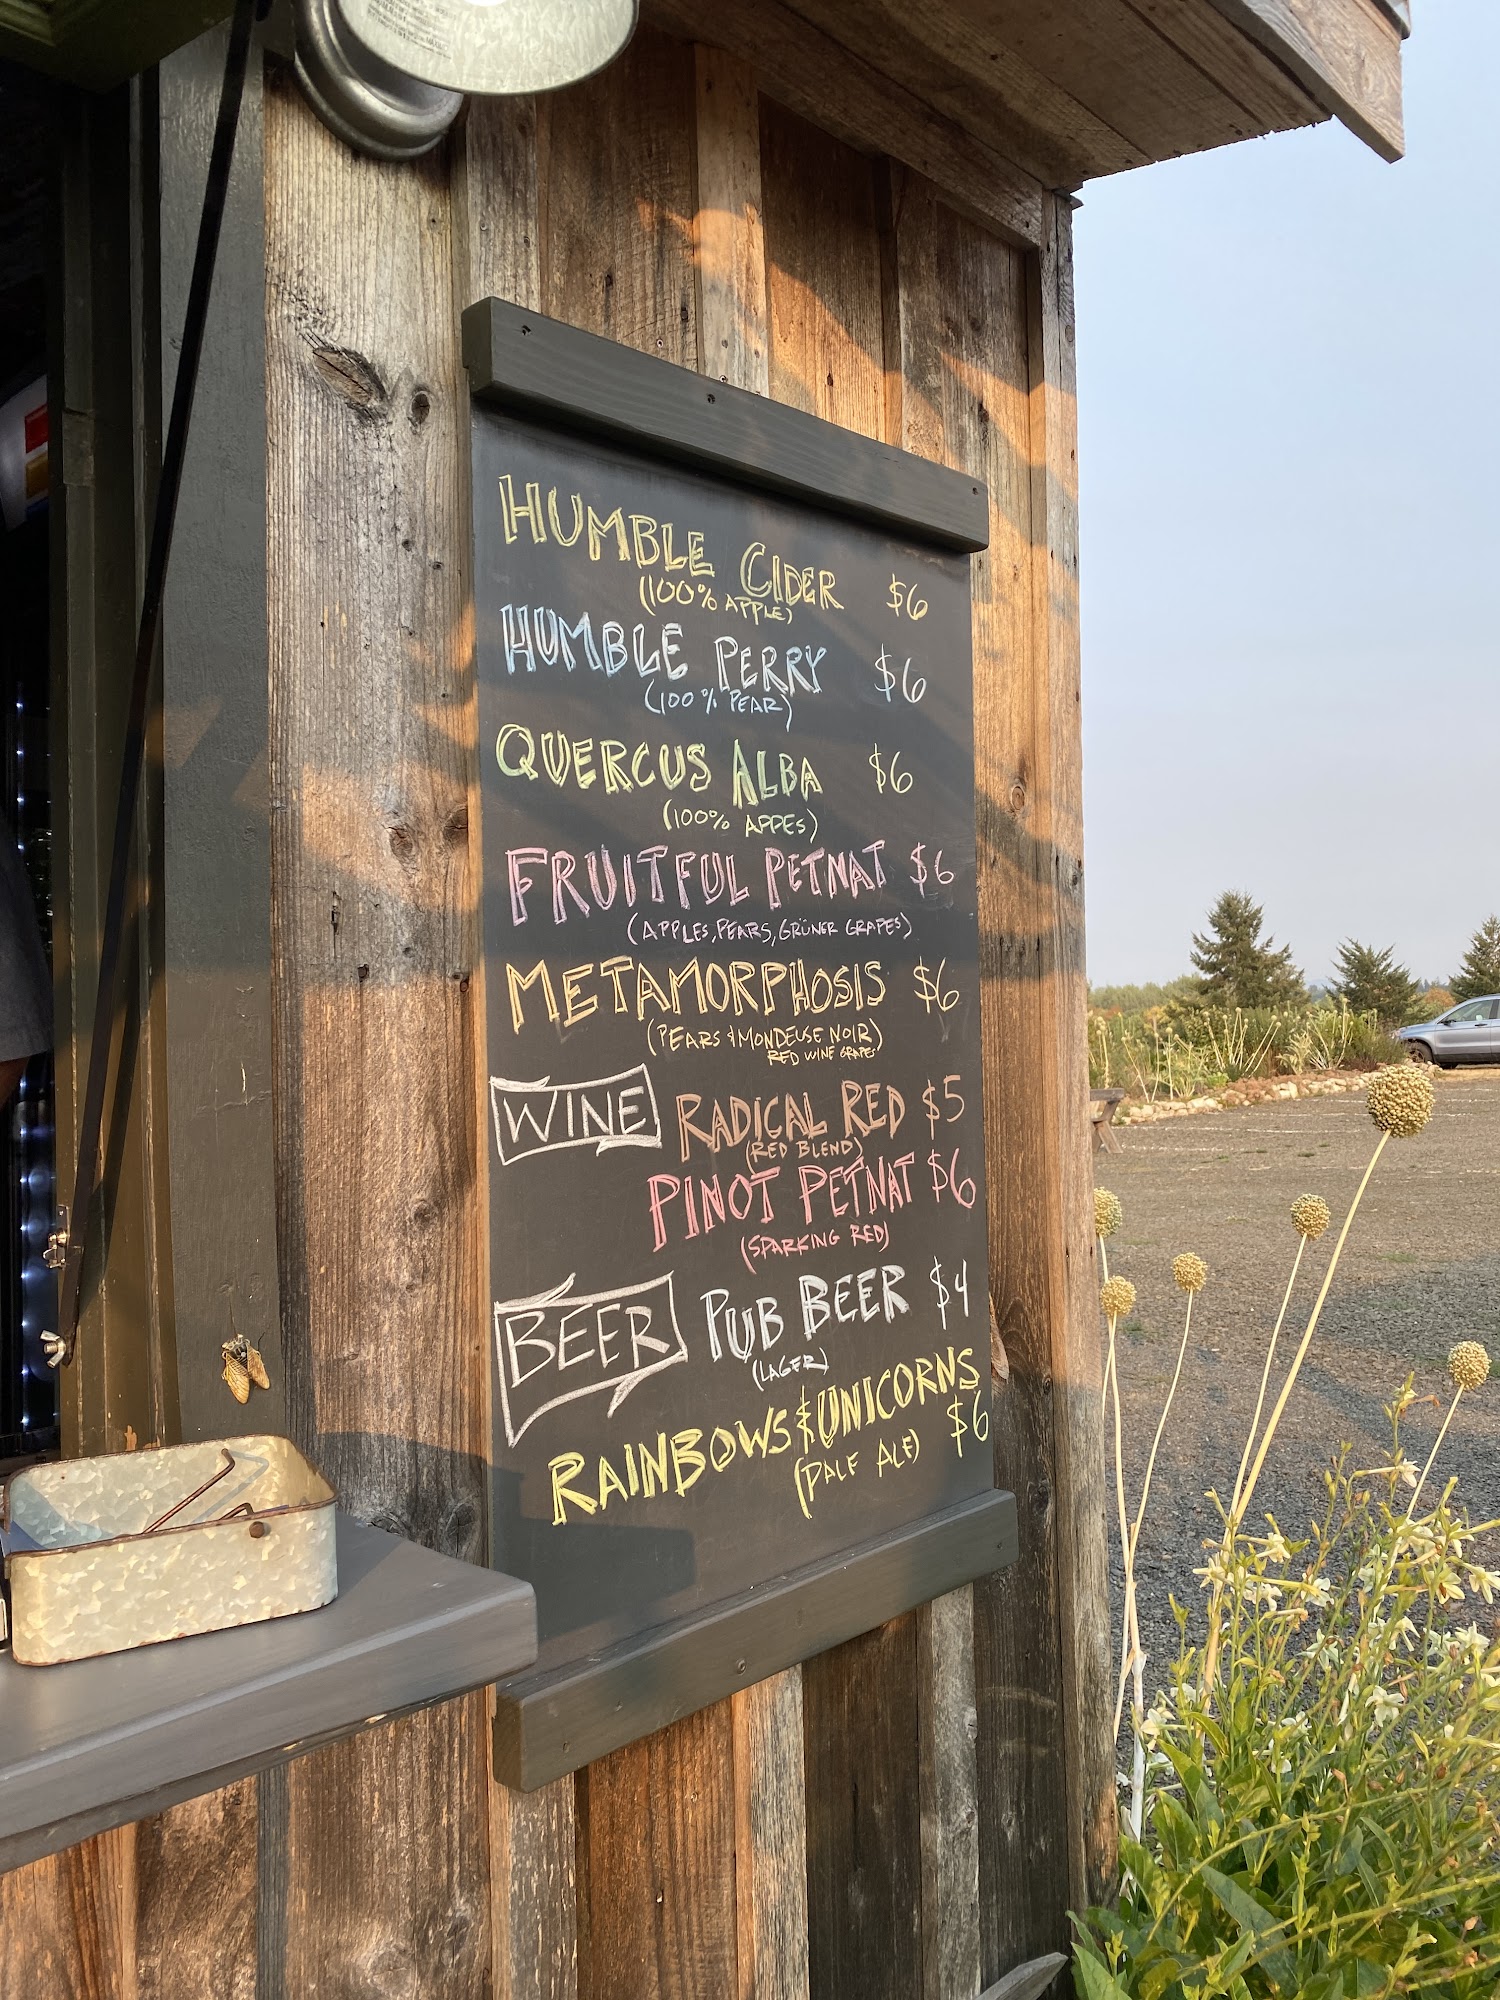 HUMBLE CIDER $6
(100% APPLE)
HUMBLE PERRY $6
(100% PEAR)
QUERCUS ALBA $6
(100% APPES)
FRUITFUL PETNAT $6
(APPLES, PEARS, GRÜNER GRAPES)
METAMORPHOSIS $6
(PEARS & MONDEUSE NOIR)
RED WINE GRAPES
WINE RADICAL RED $5
(RED BLEND)
PINOT PETNAT $6
(SPARKING RED)
BEER PUB BEER $4
(LAGER)
RAINBOWS & UNICORNS
(PALE ALE) $6